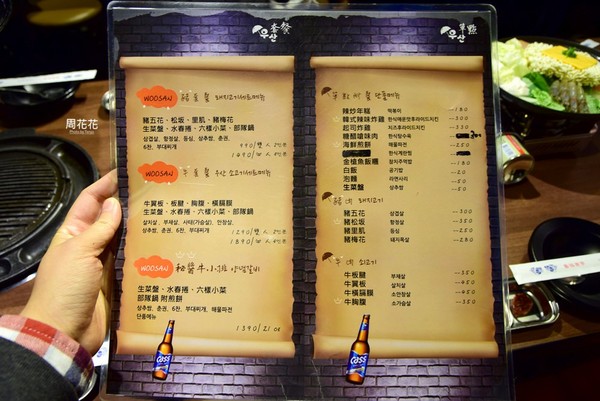 周花花
우산 套餐
WOOSAN 豬 盤 돼지고기세트메뉴
豬五花、松坂、里肌、豬梅花
生菜盤、水春捲、六樣小菜、部隊鍋
삼겹살, 항정살, 등심, 상추쌈, 춘권,
6찬, 부대찌개
WOOSAN 牛 盤 우산 소고기세트메뉴
牛翼板、板腱、胸腹、橫膈膜
生菜盤、水春捲、六樣小菜、部隊鍋
상추쌈, 춘권, 6찬, 부대찌개
1290/雙人
1890/
WOOSAN 秘醬牛小排 양념갈비
生菜盤、水春捲、六樣小菜
部隊鍋 附煎餅
상추쌈, 춘권, 6찬, 부대찌개, 해물파전
단품메뉴
1390/21oz
Cass
우산 單點
단품메뉴
辣炒年糕 떡볶이 180
韓式辣味炸雞 한식매운맛후라이드치킨 330
起司炸雞 치즈후라이드치킨 330
糖醋嫩豬肉 한식탕수육
海鮮煎餅 해물파전 250
한식계란찜
金槍魚飯糰 참치주먹밥 180
白飯 공기밥 20
泡麵 라면사리 50
生菜盤 상추쌈 50
豬肉 돼지고기
豬五花 삼겹살 300
豬松坂 항정살 350
豬里肌 등심 250
豬梅花 돼지목살 280
牛肉 쇠고기
牛板腱 부채살 350
牛翼板 살치살 450
牛橫膈膜 소안창살 450
牛胸腹 소가슴살 350
Cass